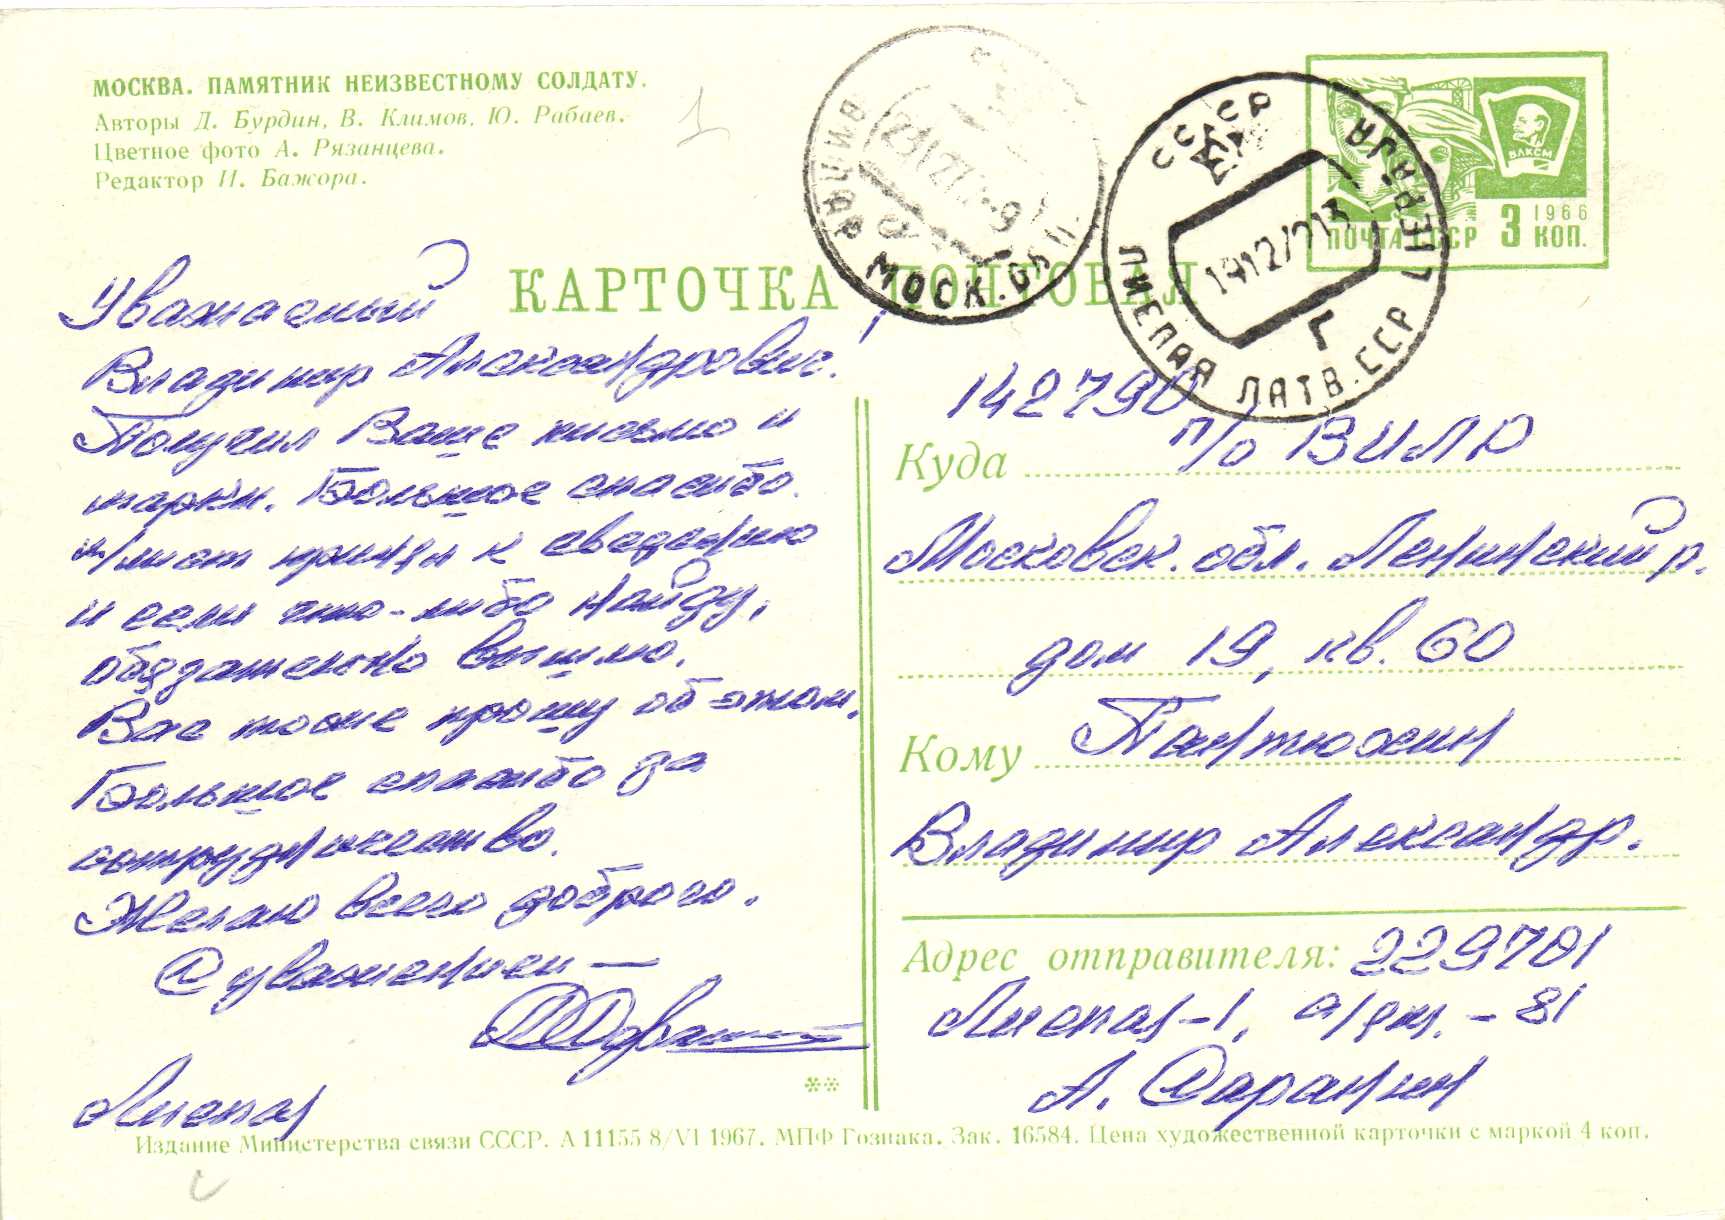 МОСКВА. ПАМЯТНИК НЕИЗВЕСТНОМУ СОЛДАТУ.
Авторы Д. Бурдин, В. Климов, Ю. Рабаев.
Цветное фото А. Рязанцева.
Редактор И. Бажора.
1
ВЛКСМ
1966
ПОЧТА СССР 3 КОП.
СССР
ЛИЕПАЯ ЛАТВ. ССР
Г
МОСК. ОБЛ
КАРТОЧКА ПОЧТОВАЯ
Уважаемый
Владимир Александрович!
Получил Ваше письмо и
марки. Большое спасибо.
принял к сведению
и если что-либо найду,
обязательно вышлю.
Вас тоже прошу об этом.
Большое спасибо за
сотрудничество.
Желаю всего доброго.
С уважением —
Лиепая
142790
Куда п/о ВИЛР
Московск. обл. Ленинский р.
дом 19, кв. 60
Кому Пантюхин
Владимир Александр.
Адрес отправителя: 229701
Лиепая-1, а/ящ. - 81
А. Саранин
Издание Министерства связи СССР. А 11155 8/VI 1967. МПФ Гознака. Зак. 16584. Цена художественной карточки с маркой 4 коп.